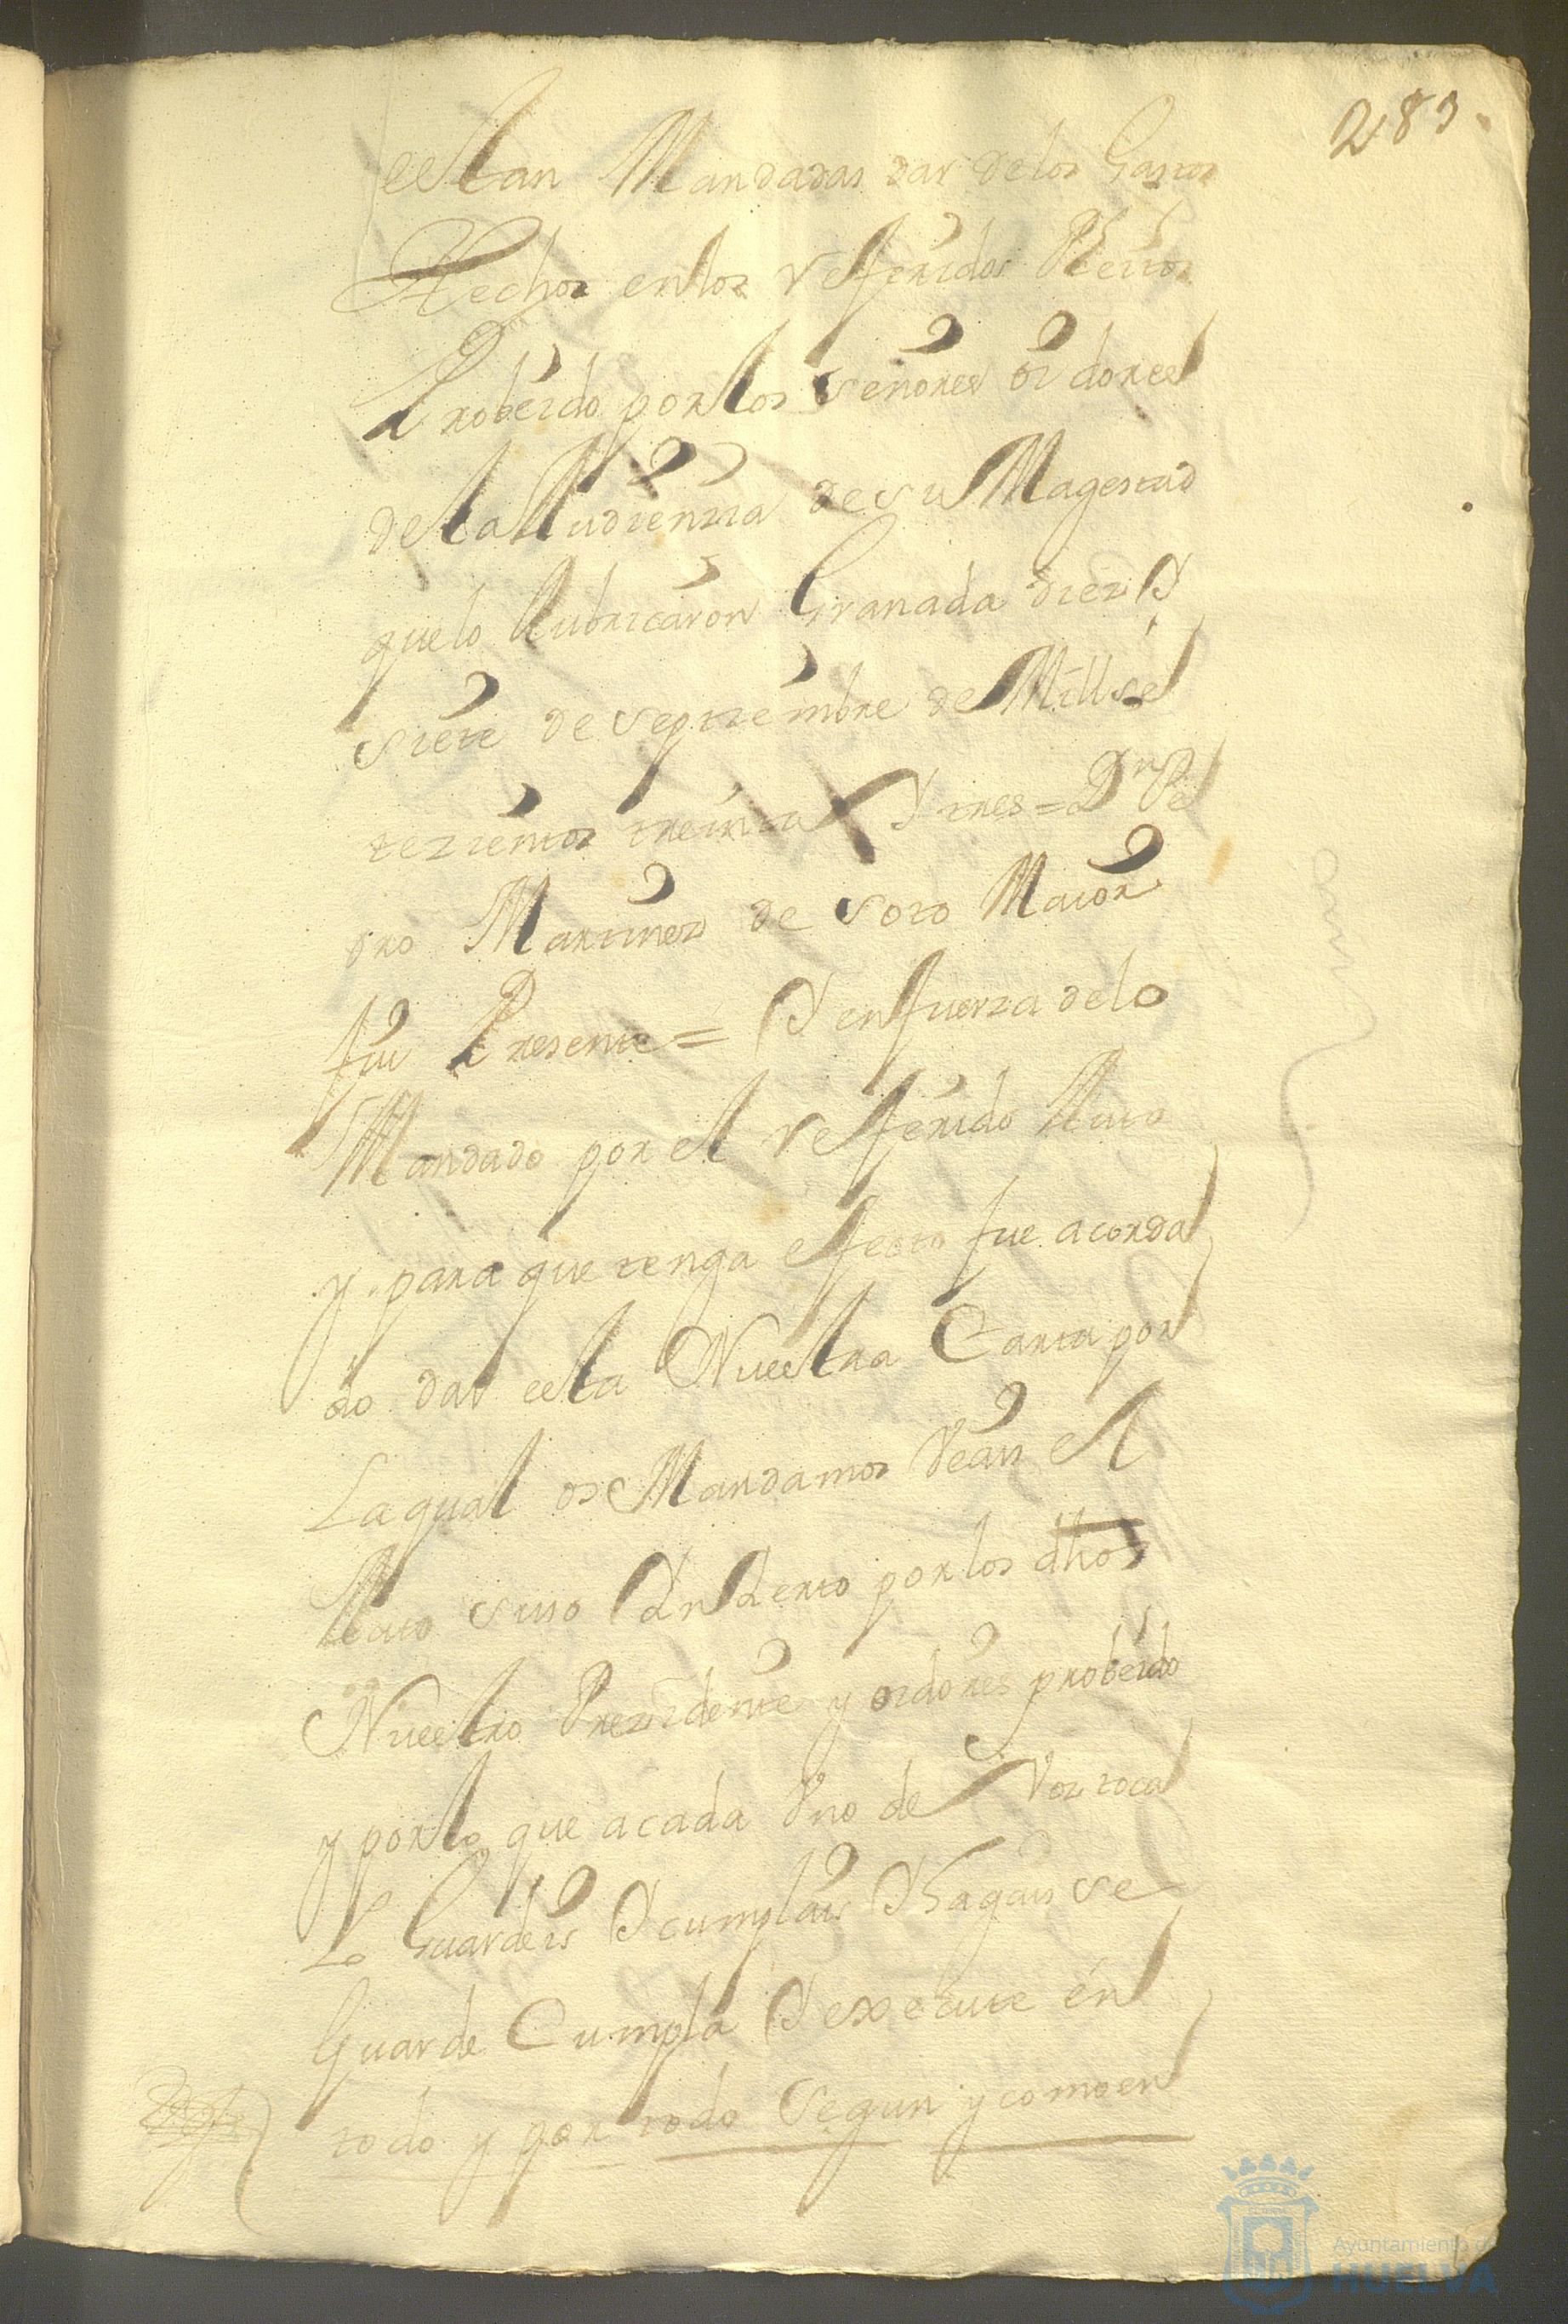 289
estan Mandadas dar de los Gastos
Hechos en los referidos Pleitos
Probeido por los señores oidores
de la Audienzia de su Magestad
que lo Rubricaron Granada diez Y
siete de septiembre de Mill se
tezientos treinta Y tres = Dn Pe
dro Martinez de Soto Maior
fui Presente = Y en fuerza de lo
Mandado por el referido Auto
y para que tenga efecto fue acorda
do dar esta Nuestra Carta por
La qual os Mandamos Veais el
Auto suso Ynserto por los dhos
Nuestro Prezidente y oidores probeido
y por lo que a cada Uno de Vos toca
Lo Guardeis Y cumplais Y hagais se
Guarde Cumpla Y execute en
todo y por todo Segun y como en
Ayuntamiento de
HUELVA